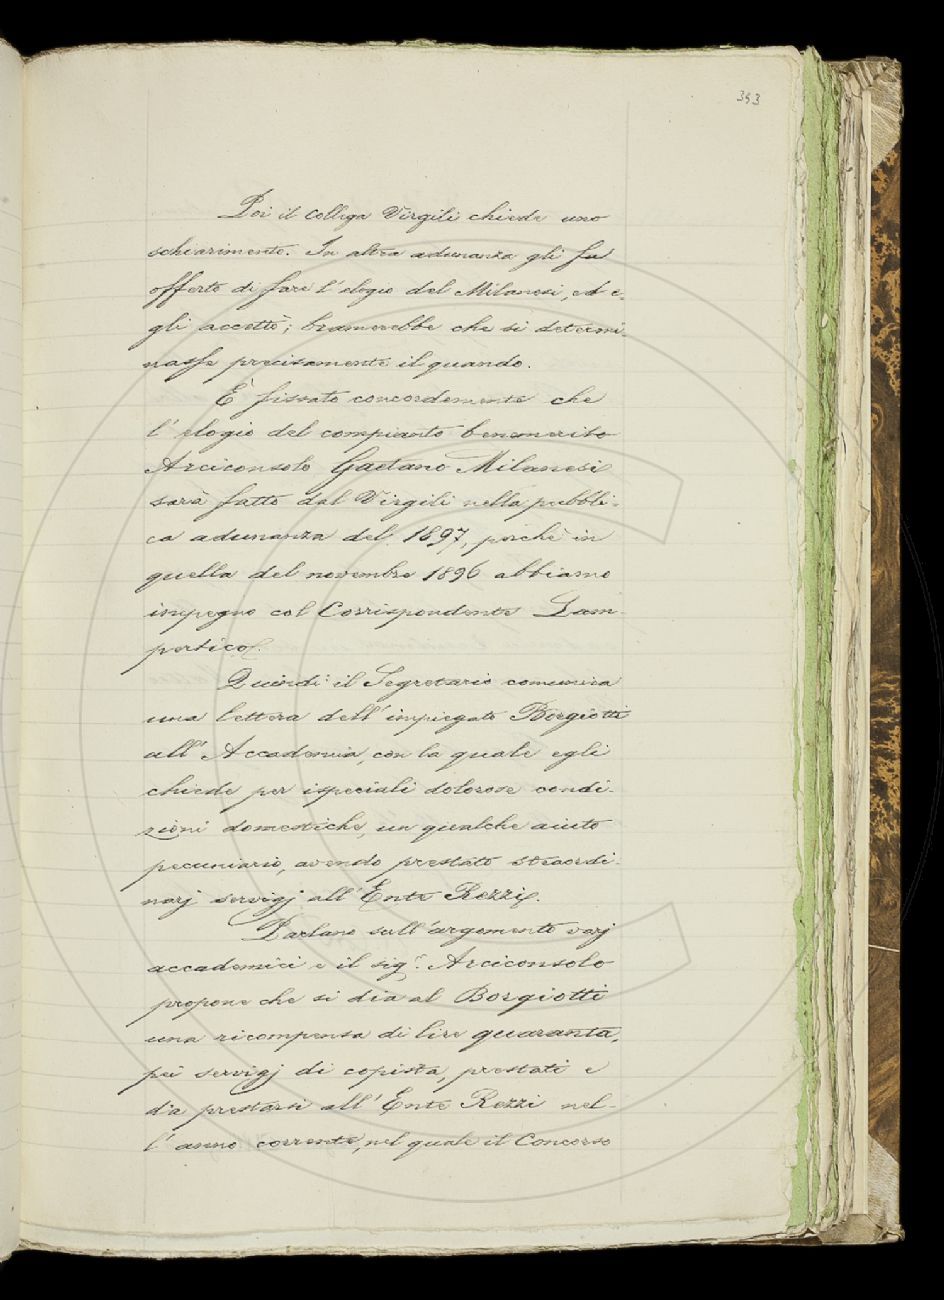 393
Poi il collega Virgili chiede uno
schiarimento. In altra adunanza gli fu
offerto di fare l'elogio del Milanesi, ed e-
gli accettò; bramerebbe che si determi-
nasse precisamente il quando.
È fissato concordemente che
l'elogio del compianto benemerito
Arciconsolo Gaetano Milanesi
sarà fatto dal Virgili nella pubbli-
ca adunanza del 1897, perchè in
quella del novembre 1896 abbiamo
impegno col Corrispondente Lam-
pertico.
Quindi il Segretario comunica
una lettera dell'impiegato Borgiotti
all'Accademia, con la quale egli
chiede per ispeciali dolorose condi-
zioni domestiche, un qualche aiuto
pecuniario, avendo prestato straordi-
narj servigj all'Ente Rezzi.
Parlano sull'argomento varj
accademici e il sig.r Arciconsolo
propone che si dia al Borgiotti
una ricompensa di lire quaranta,
pei servigj di copista, prestati e
da prestarsi all'Ente Rezzi nel-
l'anno corrente, nel quale il Concorso